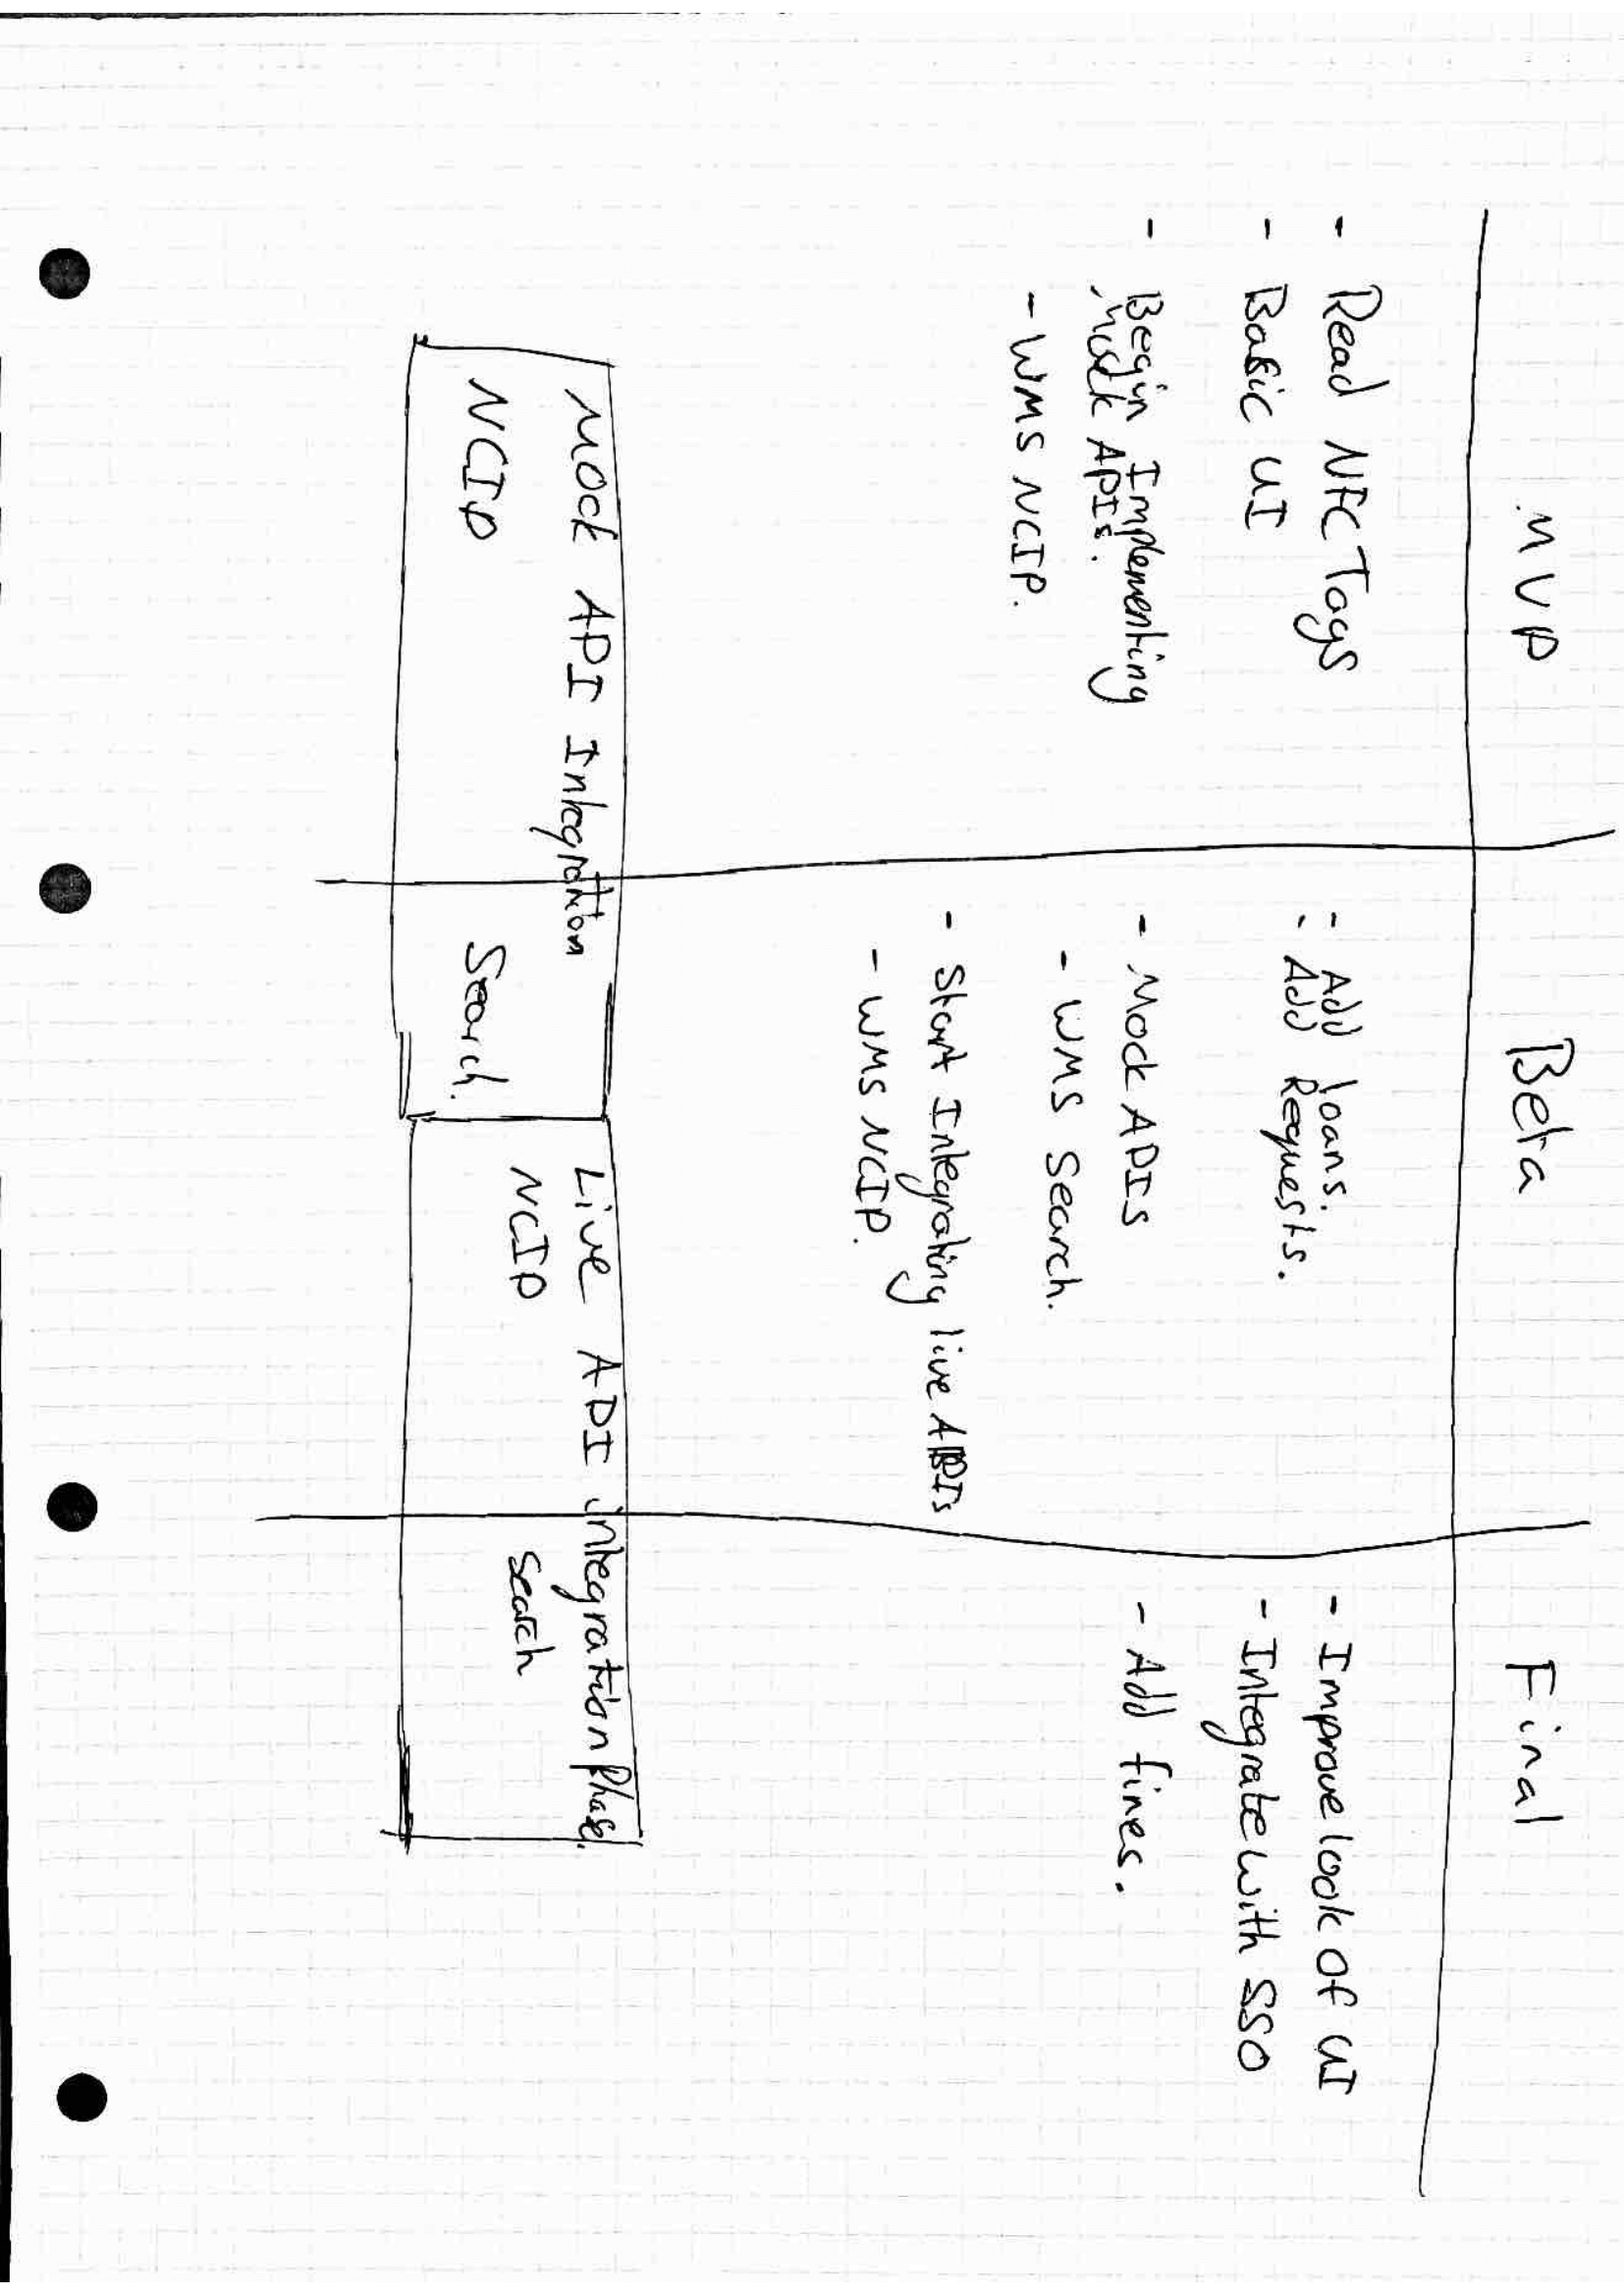 MVP
Beta
Final
- Read NFC Tags
- Basic UI
- Begin Implementing
Mock APIs.
- WMS NCIP.
- Add loans.
- Add Requests.
- Mock APIs
- WMS Search.
- Start Integrating live APIs
- WMS NCIP.
- Improve look of UI
- Integrate with SSO
- Add fines.
Mock API Integration
NCIP
Search.
Live API integration Phase.
NCIP
Search